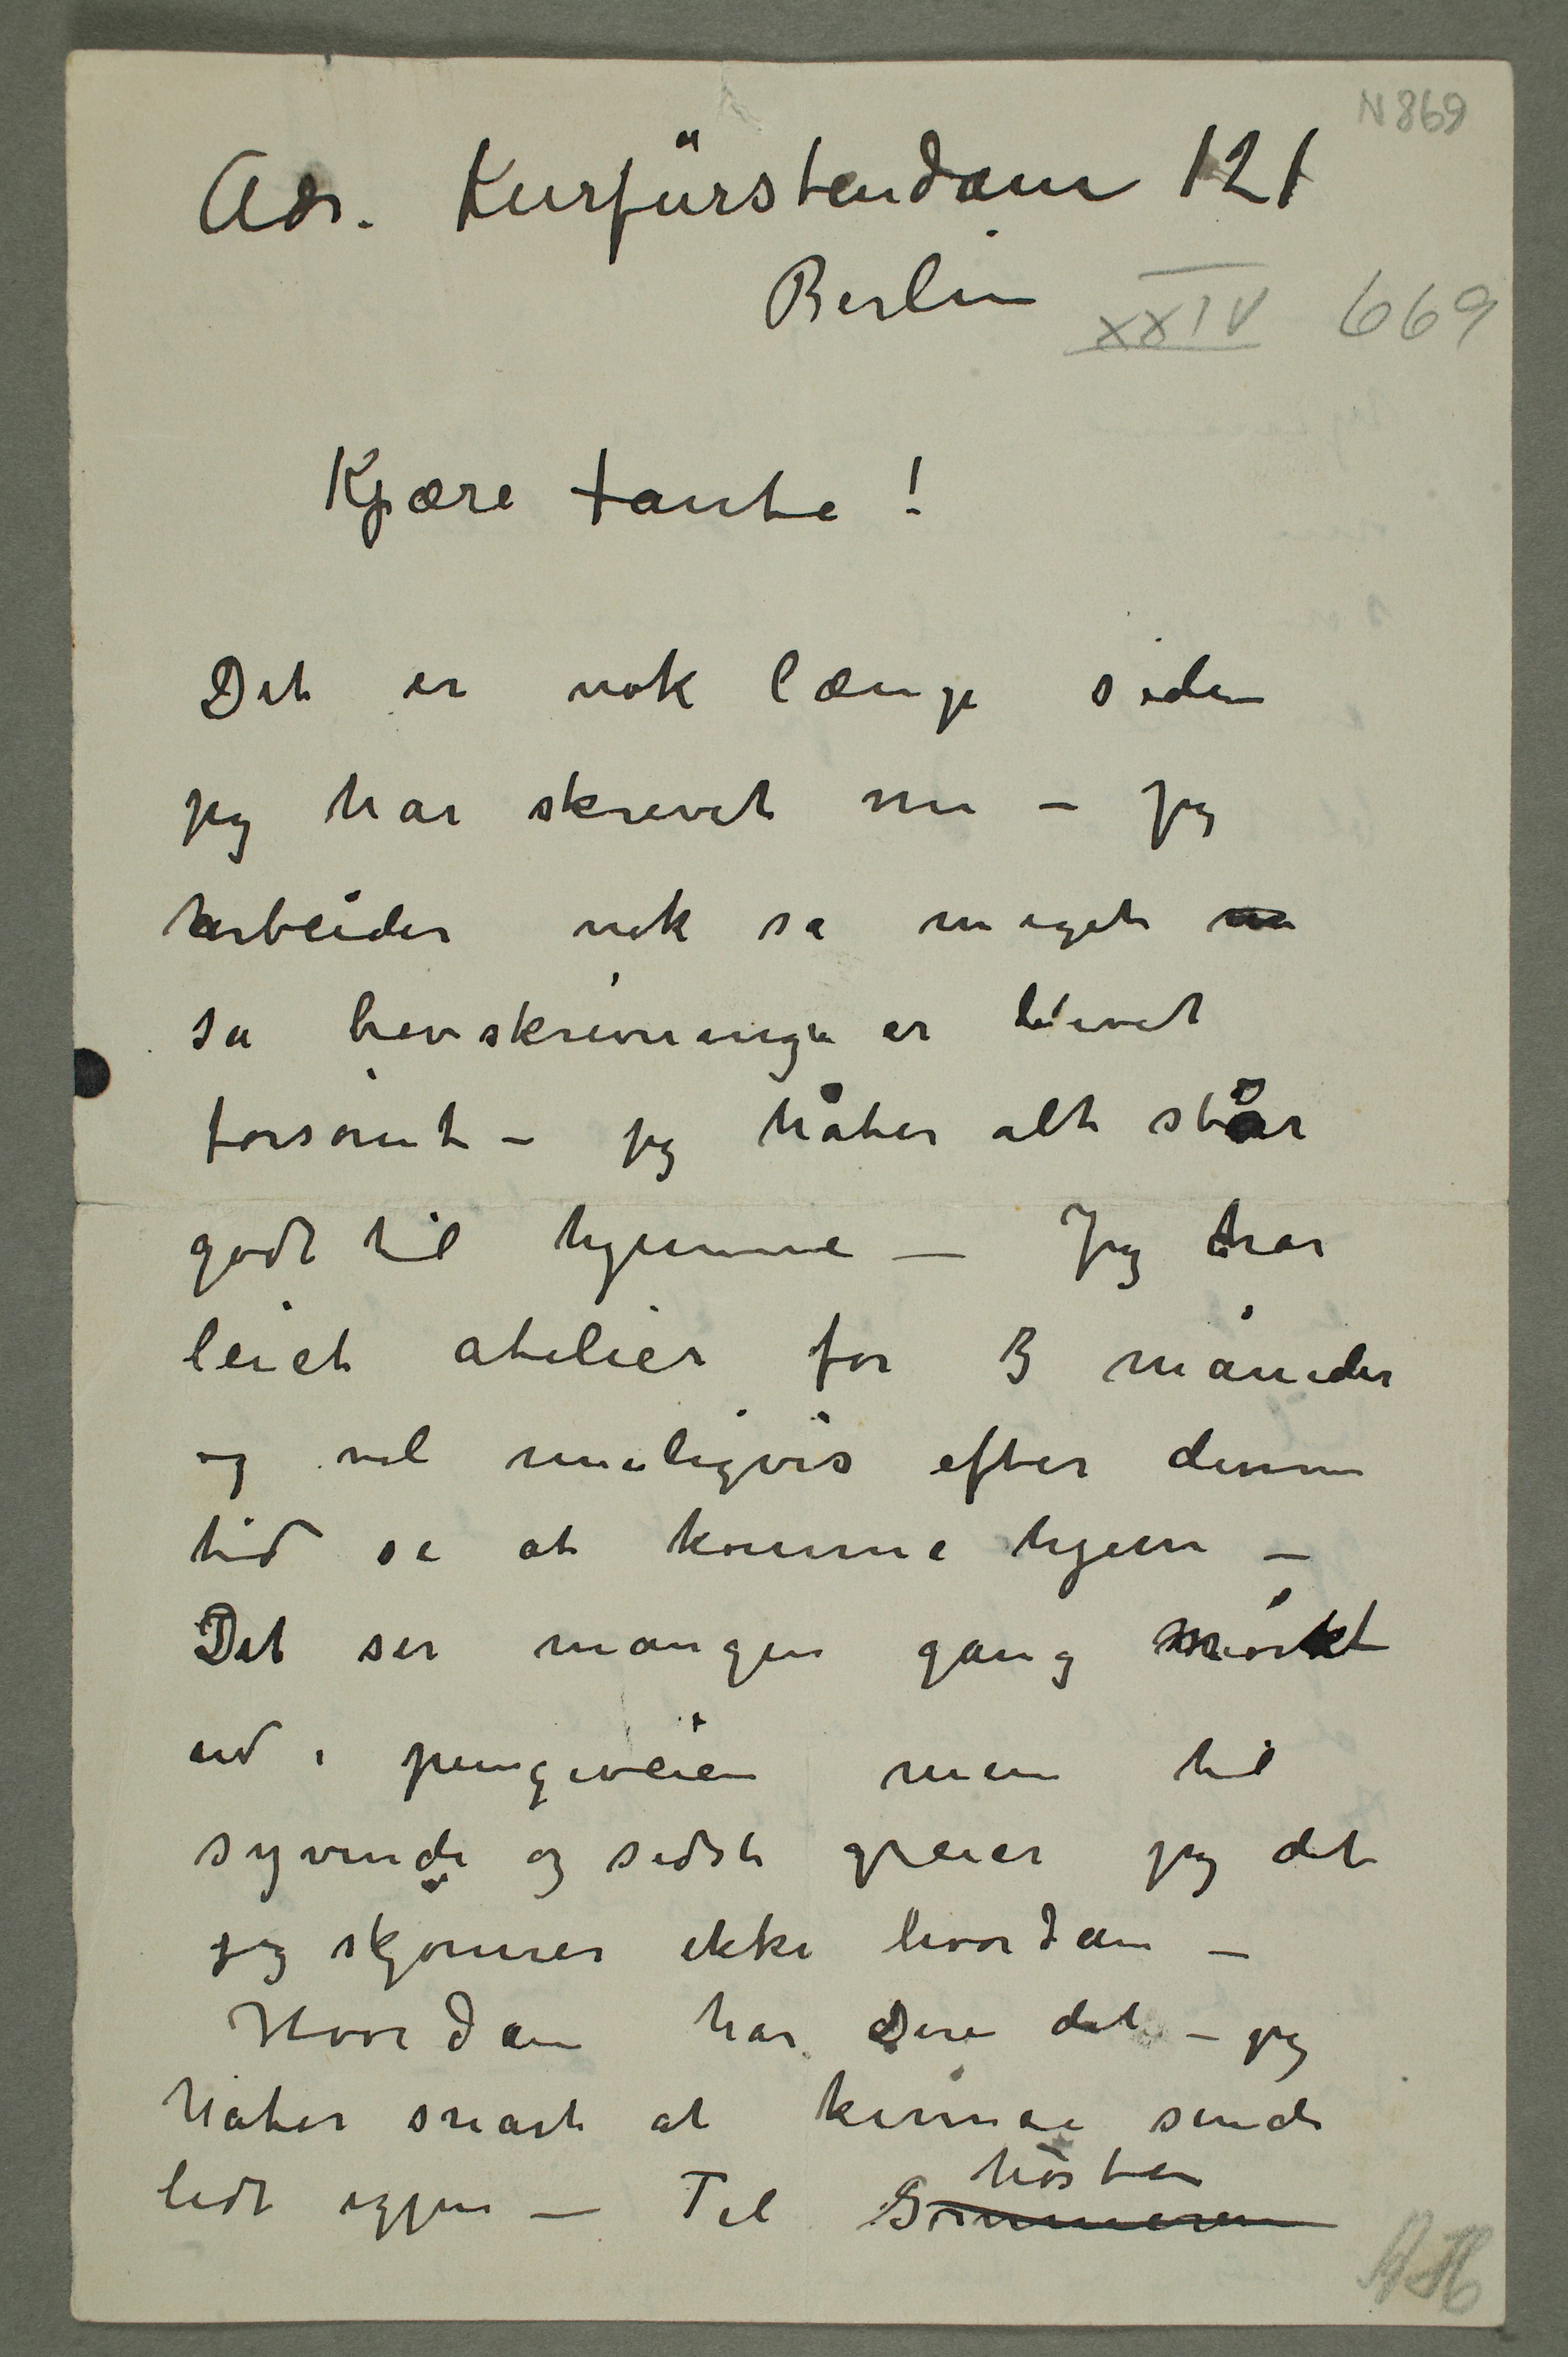 N 869
Adr. Kurfürstendam 121
Berlin
XXIV 669
Kjære tante!
Det er nok længe siden
jeg har skrevet nu – jeg
arbeider nok så meget
så brevskrivningen er blevet
forsømt – jeg håber alt står
godt til hjemme – Jeg har
leiet atelier for 3 måneder
og vil rimeligvis efter denne
tid se at komme hjem –
Det ser mangen gang mørkt
ud i pengeveien men til
syvende og sidst greier jeg det
jeg skjønner ikke hvordan –
Hvordan har Dere det – jeg
håber snart at kunne sende
lidt igjen – Til Sommeren høsten